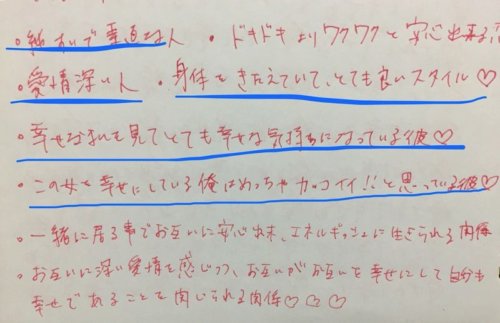 ・純すいで素直な人 ・ドキドキよりワクワクと安心出来る
・愛情深い人 ・身体をきたえていて、とても良いスタイル♡
・幸せなまいを見てとても幸せな気持ちになっている彼♡
・この女を幸せにしている俺はめっちゃカッコイイ!!と思っている彼♡
・一緒に居る事でお互いに安心出来、エネルギッシュに生きられる関係
・お互いに深い愛情を感じつつ、お互いがお互いを幸せにして自分も
幸せであることを感じられる関係♡♡♡